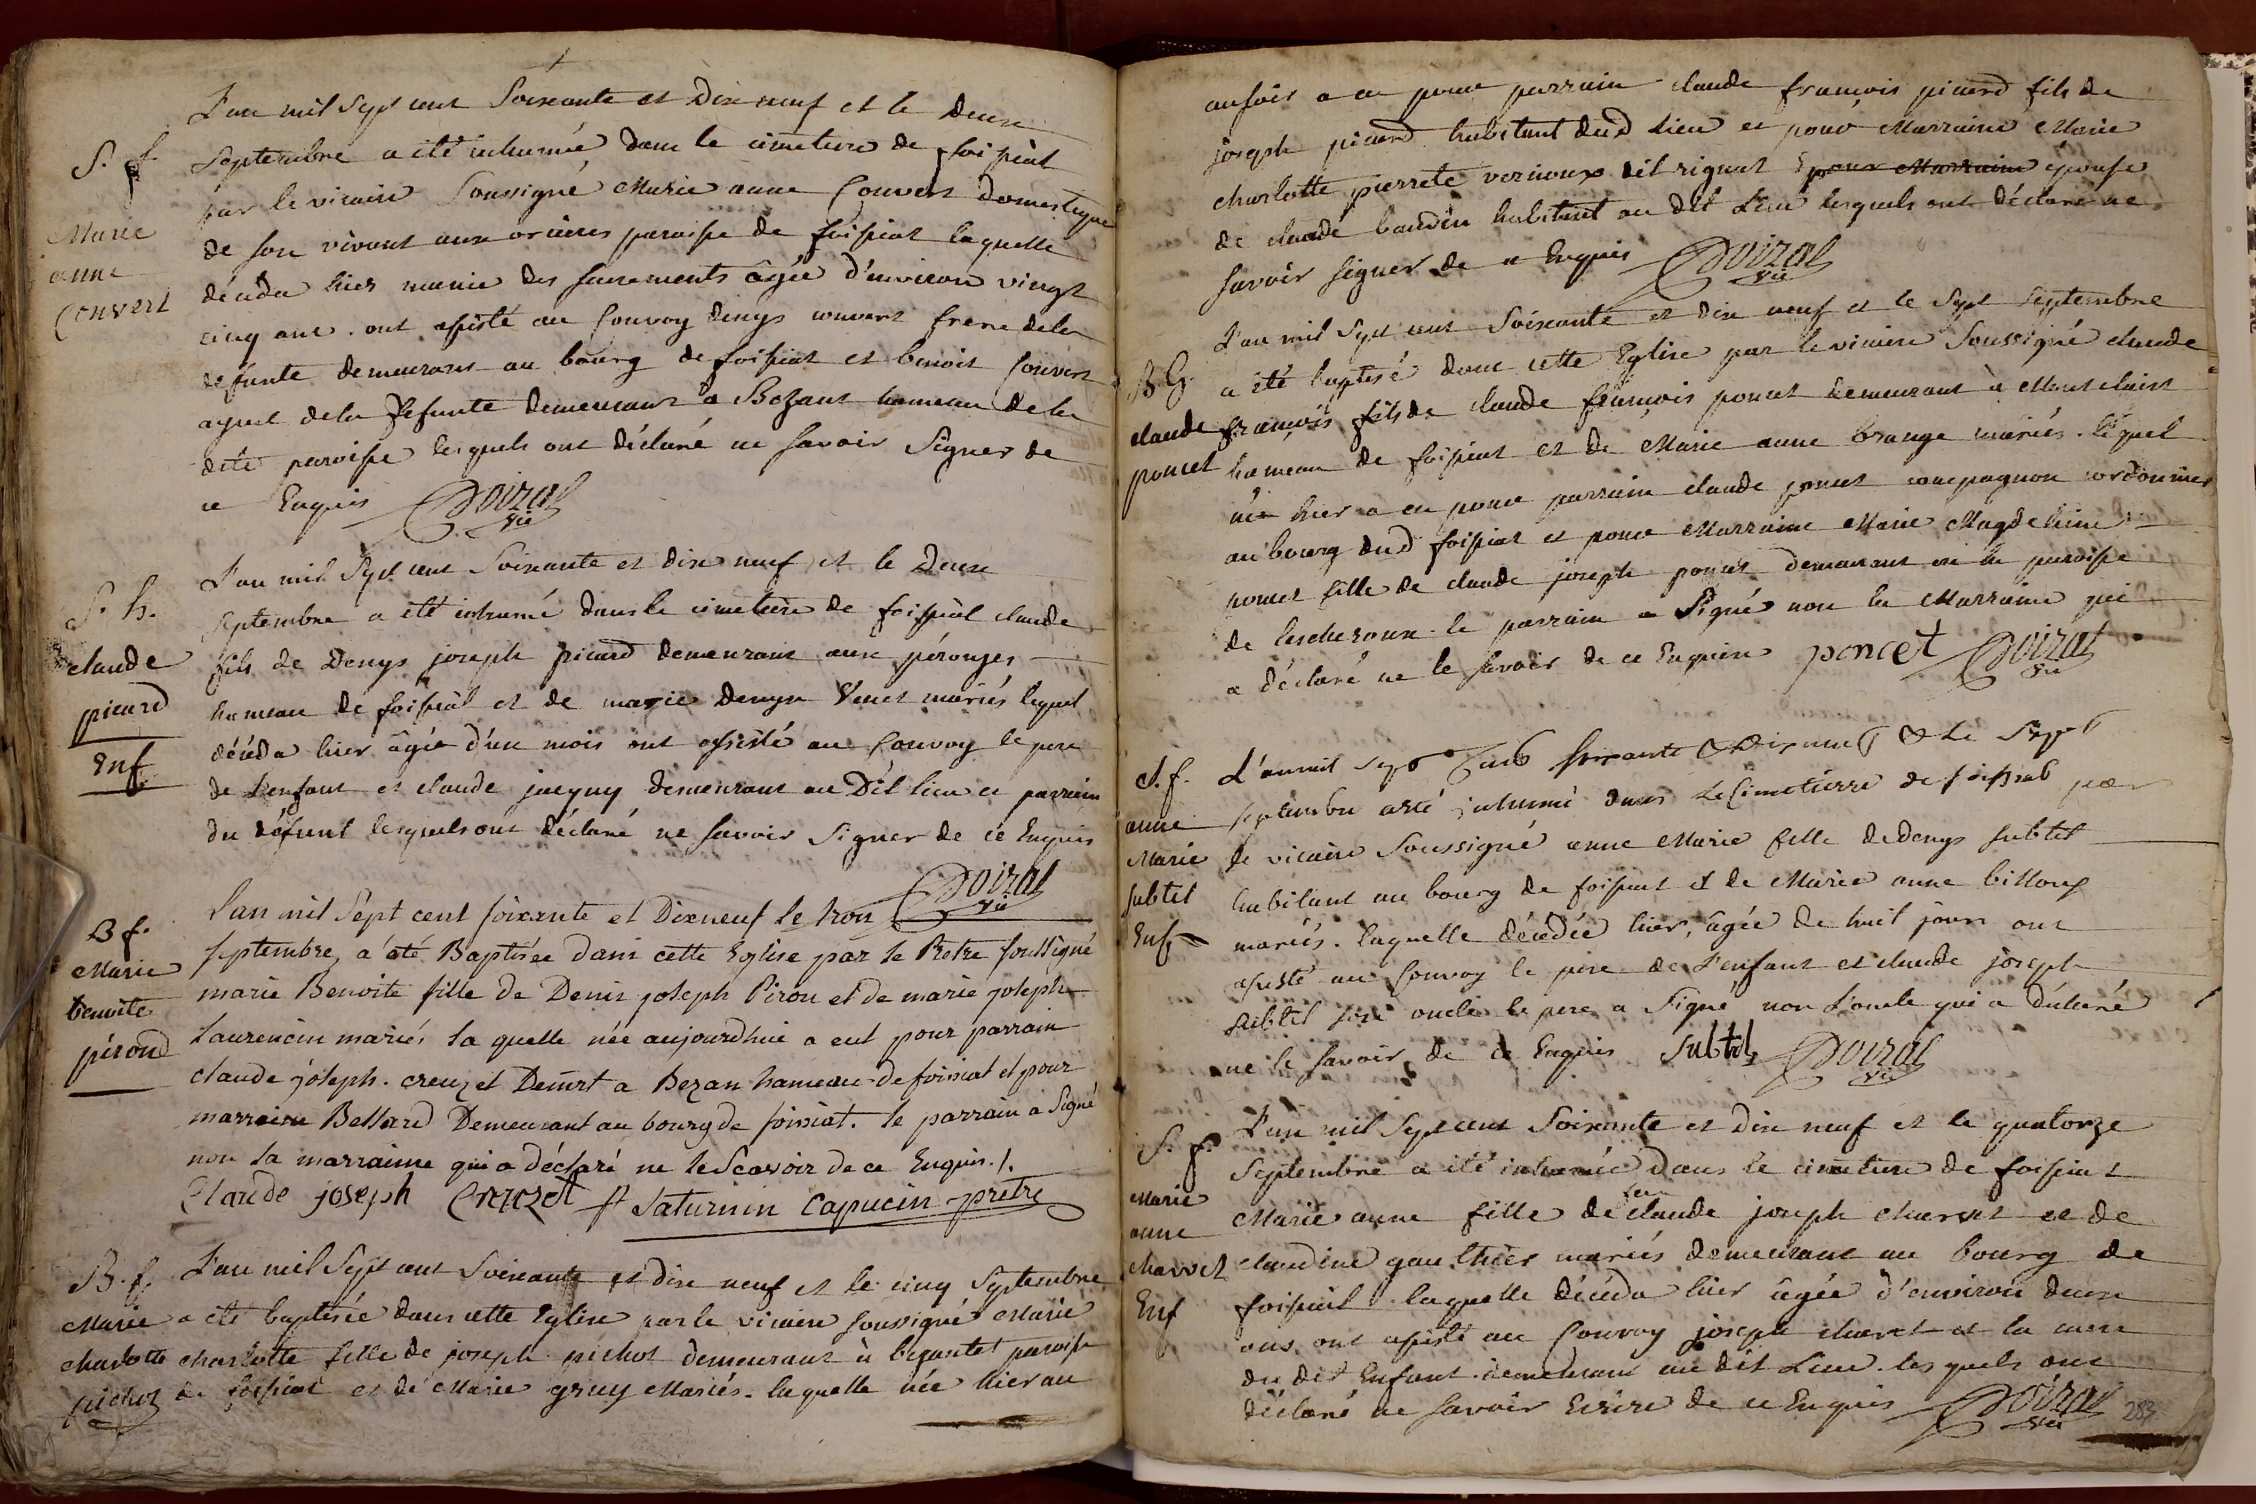 L'an mil Sept cent Soixante et Dix neuf et le Deux
S. f.
Septembre a été inhumée dans le cimetiere de foissiat
par le vicaire Soussigné Marie anne Convert domestique
Marie
anne
Convert
de son vivant aux orieres paroisse de foissiat laquelle
décéda hier munie des sacrements âgée d'environ vingt
cinq ans. ont assisté au Convoy denys convert frere dela
defunte demeurant au bourg de foissiat et benoit Convert
ayeul dela Defunte demeurant à Bezant hameau dela
dite paroisse lesquels ont déclaré ne savoir Signer de
ce Enquis Doizat
vic
L'an mil Sept cent Soixante et dix neuf et le Deux
S. h.
Septembre a été inhumé dans le cimetiere de foissiat claude
claude
picard
Enf
fils de Denys joseph picard demeurant aux péronges
hameau de foissiat et de marie Denyse Venet mariés lequel
décéda hier âgé d'un mois ont assisté au Convoy le pere
de L'enfant et claude jacquy demeurant au Dit lieu et parrain
du défunt lesquels ont déclaré ne savoir Signer de ce Enquis
Doizat
vic
L'an mil Sept cent soixante et Dixneuf le trois
B f.
Marie
benoite
pérond
septembre, a été Baptisée dans cette Eglise par le Pretre soussigné
marie Benoite fille de Denis joseph Pirou et de marie joseph
Laurencin mariés la quelle née aujourdhui a eut pour parrain
claude joseph. creuzet Demrt a Bezan hameau de foissiat et pour
marraine Bellard Demeurant au bourg de foissiat. le parrain a Signé
non la marraine qui a déclaré ne le Scavoir de ce Enquis ./.
Claude joseph Creuzet ff Saturnin capucin prêtre
B. f.
L'an mil Sept cent Soixante et dix neuf et le cinq Septembre
Marie
charlotte
pichot
a été baptisée dans cette Eglise par le vicaire soussigné Marie
charlotte fille de joseph pichot demeurant à bezantet paroisse
de foissiat et de Marie gruy Mariés. laquelle née hier au
au soir a eu pour parrain claude françois picard fils de
joseph picard habitant dud Lieu et pour Marraine Marie
charlotte pierrete vernoux dit rignat pour Marraine épouse
de claude baudin habitant au dit Lieu lesquels ont déclaré ne
savoir signer de ce Enquis Doizat
vic
L'an mil Sept cent Soixante et dix neuf et le Sept Septembre
B G.
a été baptisé dans cette Eglise par le vicaire Soussigné claude
claude
poncet
françois fils de claude françois poncet demeurant à Mont claist
hameau de foissiat et de Marie anne brange mariés. lequel
né hier a eu pour parrain claude poncet compagnon cordonnier
au bourg dud foissiat et pour Marraine Marie Magdeleine
poncet fille de claude joseph poncet demeurant en la paroisse
de lescheroux. le parrain a Signé non la Marraine qui
a déclaré ne le savoir de ce Enquise poncet Doizat
vic
S. f.
L'an mil sept Cent soixante & Dix neuf & Le Sept
anne
Marie
Subtil
Enf
septembre a été inhumé dans Le Cimetierre de foissiat par
le vicaire Soussigné anne Marie fille de Denys Subtil
habitant au bourg de foissiat et de Marie anne billoux
mariés. laquelle décédée hier, âgée de huit jours ont
assisté au Convoy le pere de L'enfant et claude joseph
Subtil son oncle le pere a Signé non L'oncle qui a déclaré
ne le savoir de ce Enquis Subtil Doizat
vic
L'an mil Sept cent Soixante et dix neuf et le quatorze
S. f.
Septembre a été inhumée dans le cimetiere de foissiat
Marie
anne
charvet
Enf
feu
Marie anne fille de claude joseph charvet et de
claudine gauthier mariés demeurant au bourg de
foissiat. laquelle décéda hier âgée d'environ deux
ans ont assisté au Convoy joseph charvet et la mere
du dit Enfant demeurant au dit Lieu. les quels ont
déclaré ne savoir Ecrire de ce Enquis Doizat
vic
283